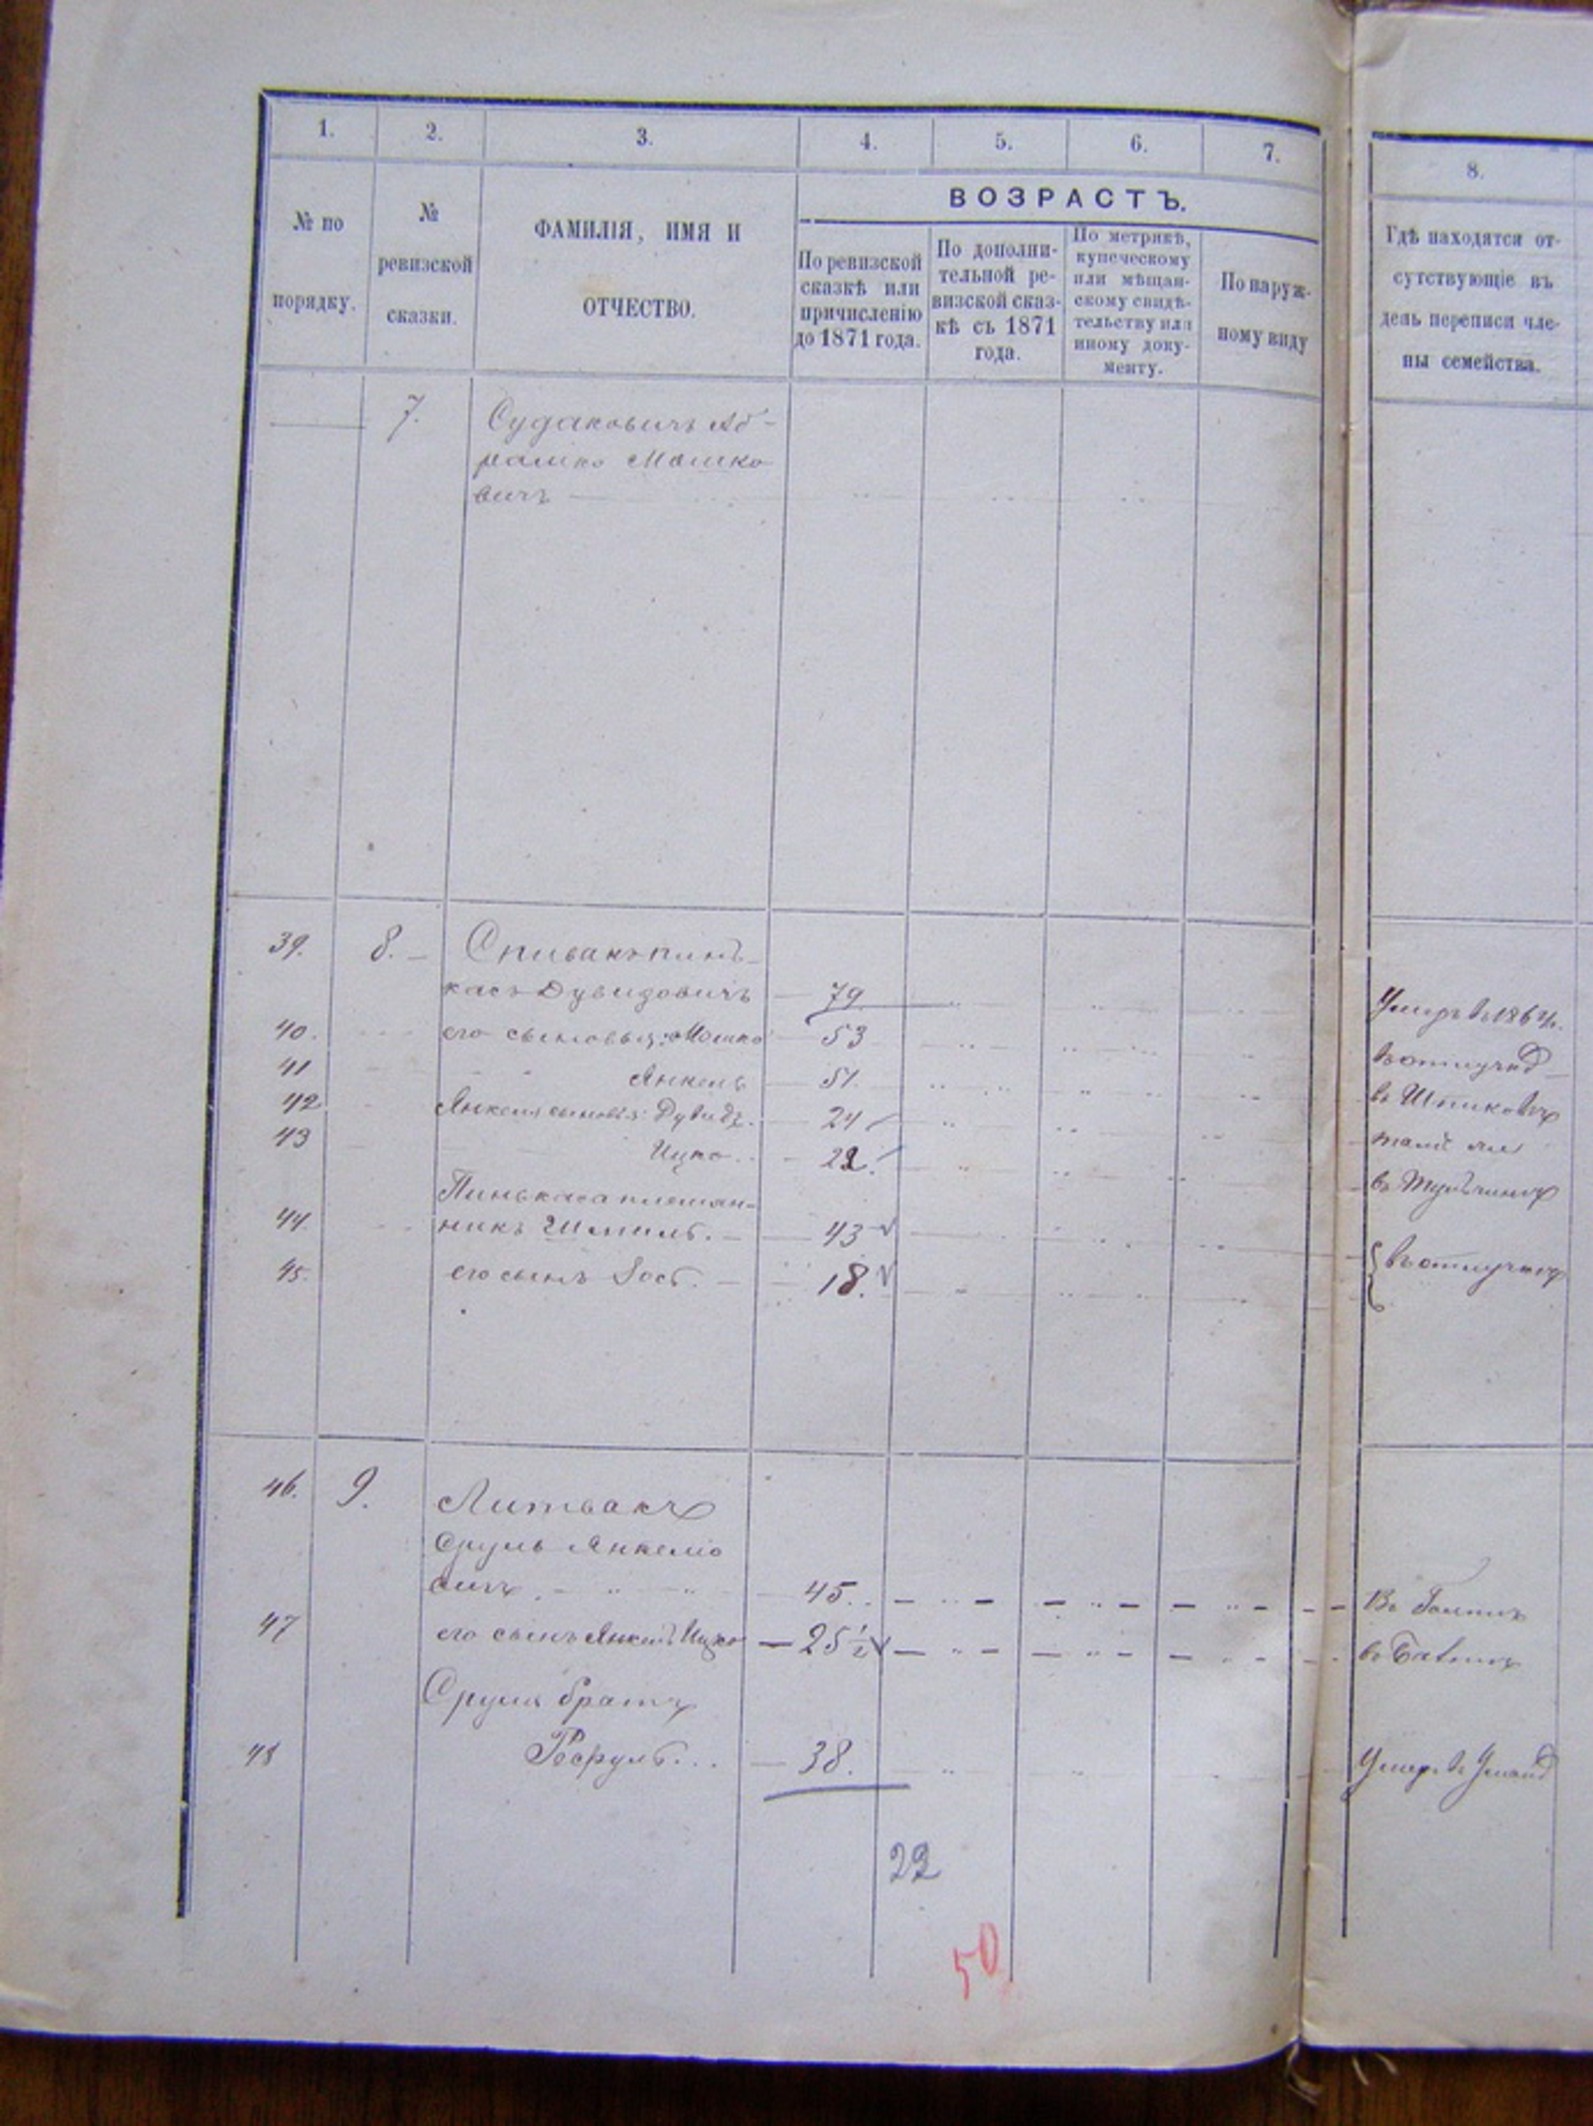 1. 2. 3. 4. 5. 6. 7. 8.
№ по порядку.
№ ревизской сказки.
ФАМИЛІЯ, ИМЯ И ОТЧЕСТВО.
ВОЗРАСТЪ.
По ревизской сказкѣ или причисленію до 1871 года.
По дополни-
тельной ре-
визской сказ-
кѣ съ 1871 года.
По метрикѣ, купеческому или мѣщан-
скому свидѣ-
тельству или иному доку-
менту.
По наруж-
ному виду
Гдѣ находятся от-
сутствующіе въ
день переписи чле-
ны семейства.
7. Судаковичъ Аб-
рамко Мошко
вичъ
39. 8. Спивакъ Пинь-
касъ Дувидовичъ 79 Умеръ въ 186
40. его сыновья: Мошко 53 въ отлучкѣ
41 Янкель 51. въ Шпиковѣ
42 Янкеля сыновья: Дувидъ. 24 тамъ же
43 Ицко. 22. въ Тульчинѣ
Пинькаса племян-
44. никъ Шмиль. 43 въ отлучкѣ
45. его сынъ Іось. 18.
46. 9. Литвакъ
Сруль Янкелио
вичъ. 45. Въ
47 его сынъ Янкель Ицко 25 1/2 въ
Сруля братъ
48 38. Умеръ въ
22
50